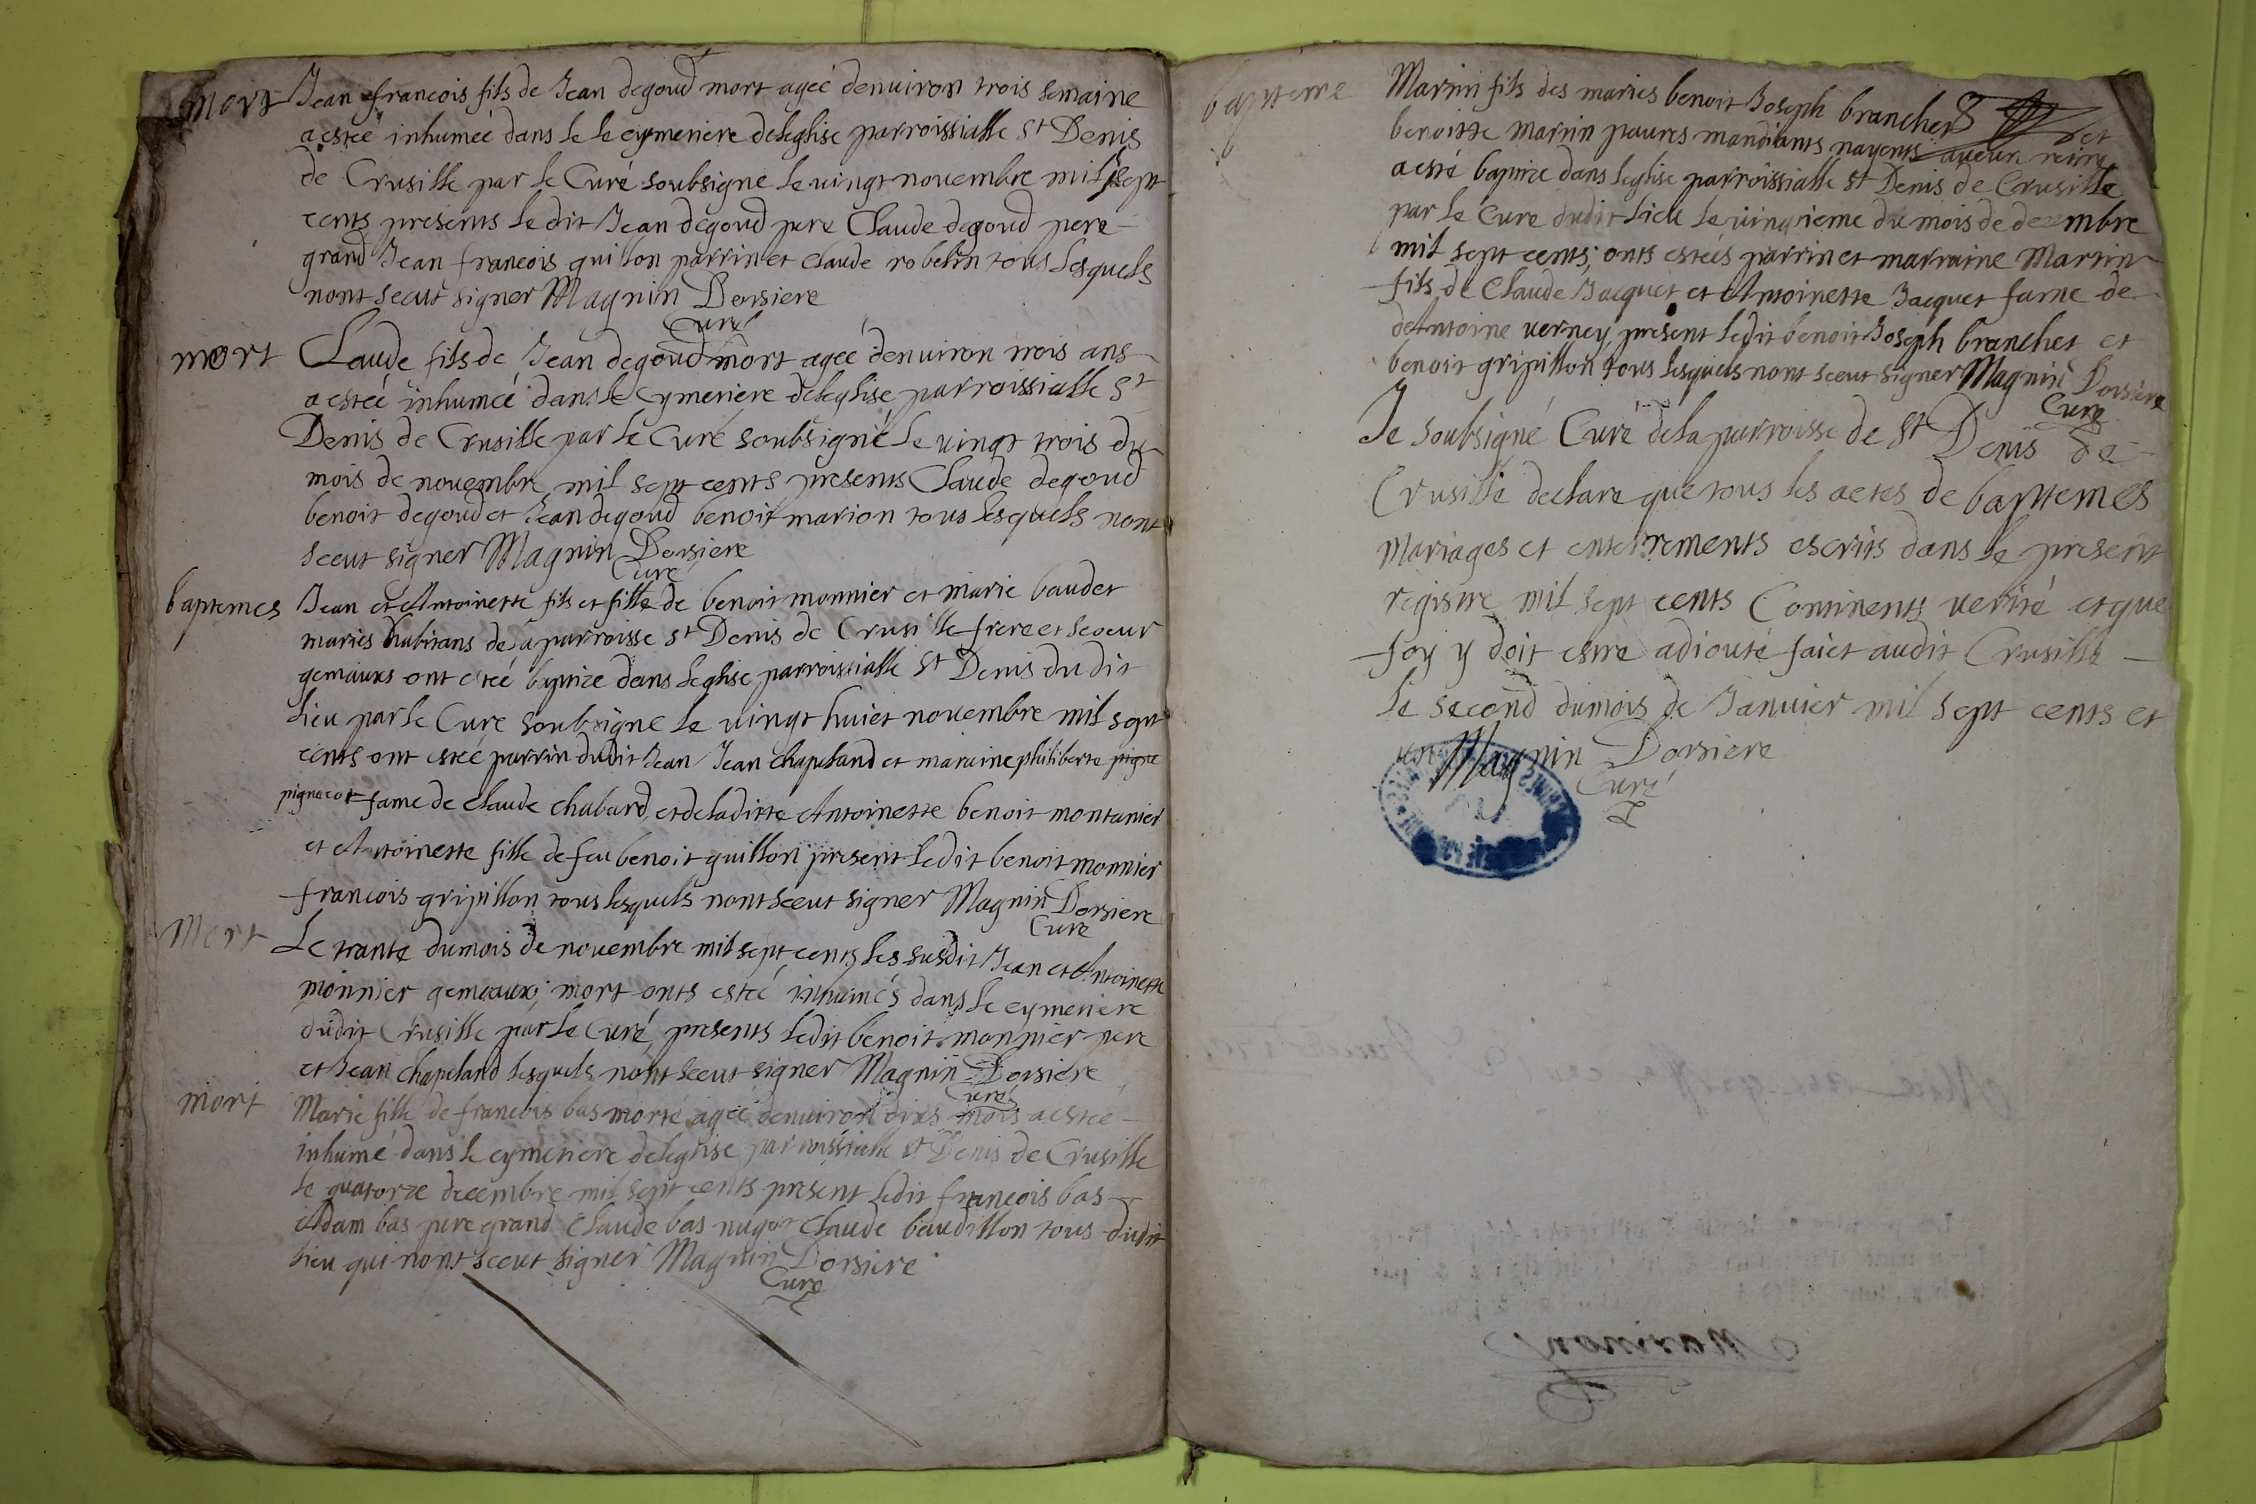 mort
Jean francois fils de Jean degoud mort agée denuiron trois semaine
a estée inhumée dans le le cymetiere deleglise parroissialle St Denis
de Crusille par le Curé soubsigne le uingt nouembre mil sept
cents presents le dit Jean degoud pere Claude degoud pere
grand Jean francois guillon parrin et Claude robelin tous lesquels
nont sceut signer Magnin Dorsiere
Curé
mort
Claude fils de Jean degoud mort agée denuiron trois ans
a estée inhumée dans le cymetiere deleglise parroissialle St
Denis de Crusille par le Curé soubsigné le uingt trois du
mois de nouembre mil sept cents presents Claude degoud
benoit degoud et Jean degoud benoit marion tous lesquels nont
sceut signer Magnin Dorsiere
Curé
baptemes
Jean et Antoinette fils et fille de benoit monnier et marie baudet
maries habitans de la parroisse St Denis de Crusille frere et seoeur
gemaux ont estée baptize dans leglise parroissialle St Denis du dit
lieu par le Cure soubsigne le uingt huict nouembre mil sept
cents ont estée parrin dudit Jean Jean chapeland et maraine philiberte
fame de Claude chabard, et de laditte Antoinette benoit montanier
et Antoinette fille de feu benoit guillon present ledit benoit monnier
francois gripillon tous lesquels nont sceut signer Magnin Dorsiere
Curé
Mort
Le trante du mois de nouembre mil sept cents les susdit Jean et Antoinette
monnier gemeaux mort onts estée inhumés dans le cymetiere
dudit Crusille par le Curé, presents ledit benoit monnier pere
et Jean chapeland lesquels nont sceut signer Magnin Dorsiere
Curé
mort
Marie fille de francois bas morte agée denuiron dixs mois a estée
inhumé dans le cymetiere deleglise parroissialle St Denis de Crusille
le quatorze decembre mil sept cents present ledit francois bas
Adam bas pere grand Claude bas Claude baudillon tous dudit
lieu qui nont sceut signer Magnin Dorsiere
Curé
bapteme
Martin fils des maries benoit Joseph branchet et
benoitte martin paures mandiants nayents aucun
a esté baptize dans leglise parroissialle St Denis de Crusille
par le Cure dudit lieu le uingtieme du mois de decembre
mil sept cents; onts estées parrin et marraine Martin
fils de Claude Jacquet et Antoinette Jacquet fame de
deAntoine uerney, present ledit benoit Joseph branchet et
benoit gripillon tous lesquels nont sceut signer Magnin Dorsiere
Curé
Je soubsigné Curé dela parroisse de St Denis de
Crusille declare que tous les actes de baptemes
mariages et enterrements escrits dans le present
registre mil sept cents Continents uerité et que
foy y doit estre adiouté faict audit Crusille
le second dumois de Januier mil sept cents et
un Magnin Dorsiere
Curé